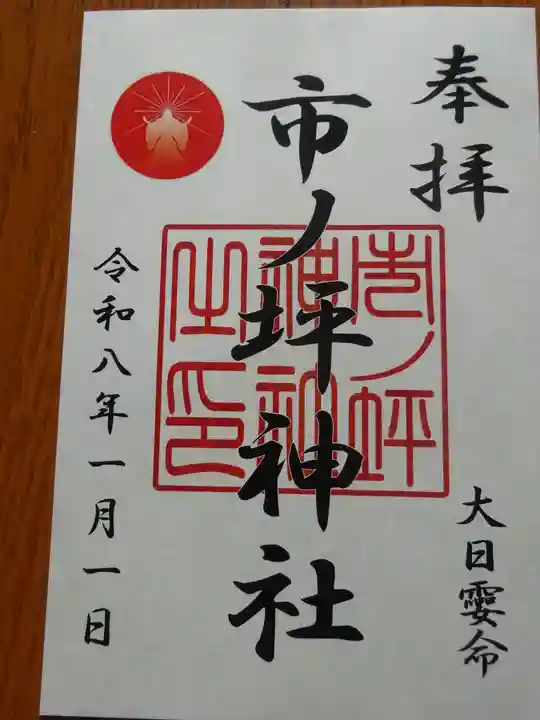 奉拝
大日孁命
市ノ坪神社
市ノ坪
神社
之印
令和八年一月一日